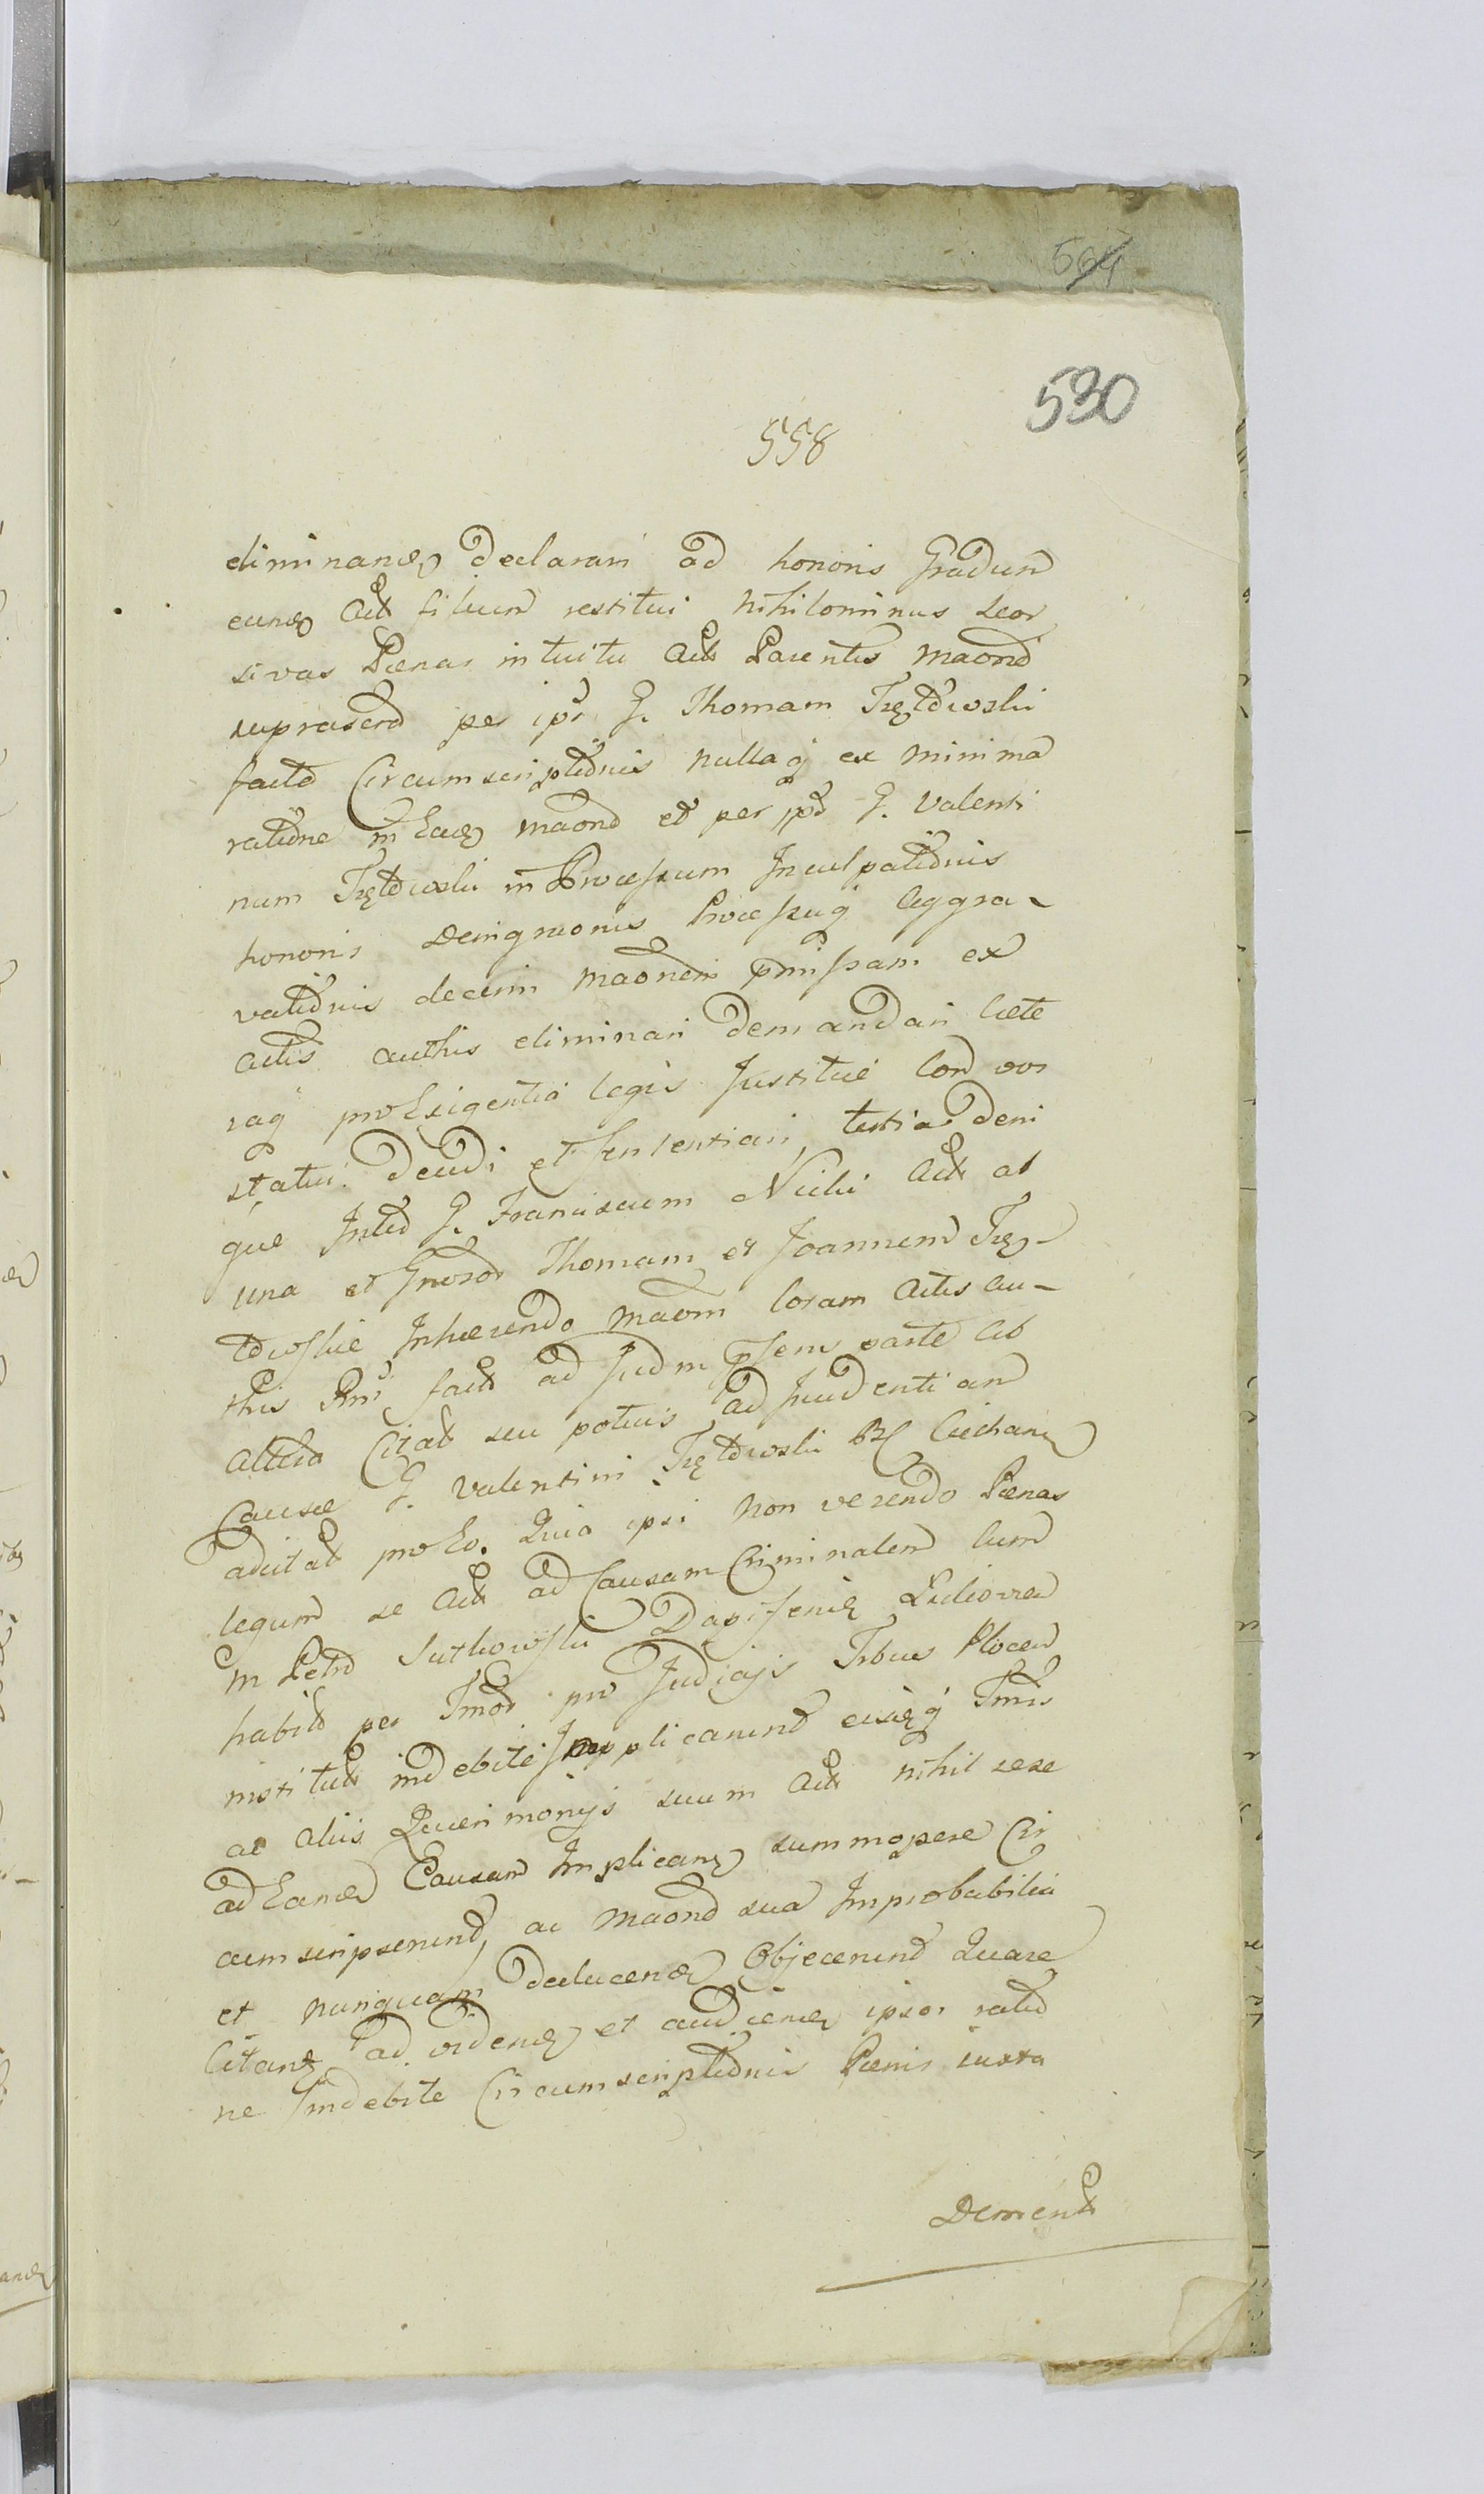 564
530
558
eliminandę Declarari ad honoris Gradum
eundę Act filium restitui nihilominus Leor
sivas Pænas intuitu Act Parentis maond
suprascrd per ipr G. Thomam Trętowski
facte Circumscriptionis nullaq ex minima
ratione in Eadę maond et per ipd G. Valenti
num Trętowski in Processum Inculpationis
honoris Denigraonis Processuq Aggra-
vationis decerni maonem pmissam ex
actis authis eliminari Demandari Cæte
raq pro Exigentia legis Justitiæ Con vos
statui Decidi et sententiari tertia Deni
que Inter G. Franciscum Nicki Act ab
una et Gnosos Thomam et Joannem Trę-
towskie Inhærendo maom Coram Actis au-
this Rni fact ad Judm psens parte ab
altera Citat seu potius ad Incidentiam
Causæ G. Valentini Trętowski Ciechan
adcitat pro Eo. Quia ipsi non verendo Pænas
legum se Act ad Causam Criminalem Cum
M Petro Sutkowski Dapifero
habit per Imod pro Judiciis Trbus Plocen
institut indebite Implicarunt eisdęq Tmis
ac aliis Querimoniis suum Act nihil sese
ad Eandę Causam Implicanę summopere Cir
cumscripserunt, ac maond sua Improbabilia
et nunquam Deducenda Objecerunt Quare
Citant ad videndę et audiendę ipsos ratio
ne Indebite Circumscriptionis Pænis iuxta
Dement